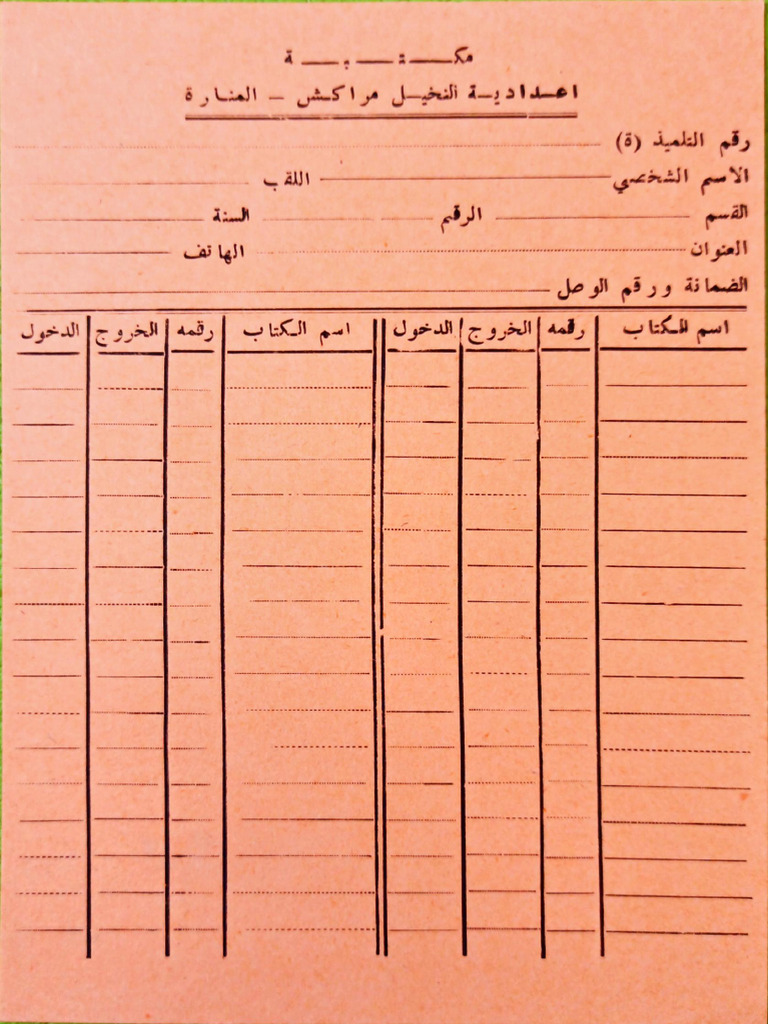 مكتبة
اعدادية النخيل مراكش - المنارة
رقم التلميذ (ة)
الاسم الشخصي اللقب
القسم الرقم السنة
العنوان الهاتف
الضمانة ورقم الوصل
اسم الكتاب رقمه الخروج الدخول اسم الكتاب رقمه الخروج الدخول